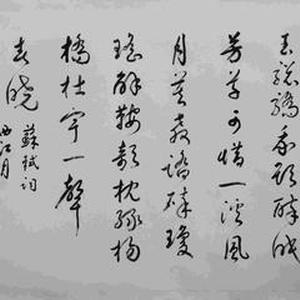 玉骢驕我欲醉眠
芳草可惜一溪風
月莫教踏碎瓊
瑤解鞍欹枕綠楊
橋杜宇一聲
春曉
蘇軾詞
西江月